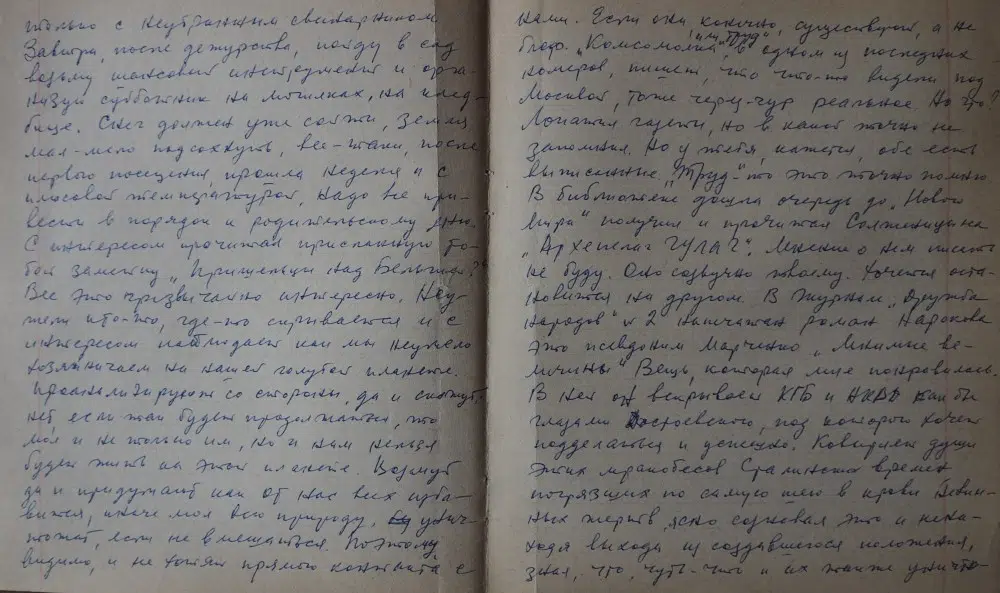 только с неубранным свинарником
Завтра, после дежурства, пойду в сад
возьму шансовый инструмент и орга-
низую субботник на могилках, на клад-
бище. Снег должен уже сойти, земля
мал-мало подсохнуть, все-таки, после
первого посещения, прошла неделя и с
плюсовой температурой. Надо все при-
вести в порядок к родительскому дню.
С интересом прочитал присланную то-
бой заметку „Пришельцы над Бельгией?"
Все это чрезвычайно интересно. Неу-
жели кто-то, где-то скрывается и с
интересом наблюдает как мы неумело
хозяйничаем на нашей голубой планете.
Проанализируют со стороны, да и скажут:
нет если так будет продолжаться, то
мол и не только им, но и нам нельзя
будет жить на этой планете. Возьмут
да и придумают как от нас всех изба-
вится, иначе мол всю природу, унич-
тожат, если не вмешаться. Поэтому
видимо, и не хотят прямого контакта с
нами. Если они, конечно, существуют, а не
блеф. „Комсомолка", "или Труд" в одном из последних
номеров, пишет, что что-то видели под
Москвой, тоже черезчур реальное. Но что
Лопатил газеты, но в какой точно не
запомнил. Но у тебя, кажется, обе есть
выписанные. „Труд"-то это точно помню.
В библиотеке дошла очередь до „Нового
мира" получил и прочитал Солженицына
„Архепелаг ГУЛАГ". Мнение о нем писать
не буду. Оно созвучно твоему. Хочется оста-
новится на другом. В журнале „Дружба
народов" № 2 напечатан роман Нарокова
это псевдоним Марченко „Мнимые ве-
личины" Вещь, которая мне понравилась.
В ней он вскрывает КГБ и НКВД как бы
глазами Достоевского, под которого хочет
подделаться и успешно. Ковыряет души
этих мракобесов Сталинских времен
погрязших по самую шею в крови невин-
ных жертв, ясно сознавая это и нена-
ходя выхода из создавшегося положения,
зная, что, чуть-что и их также уничто-